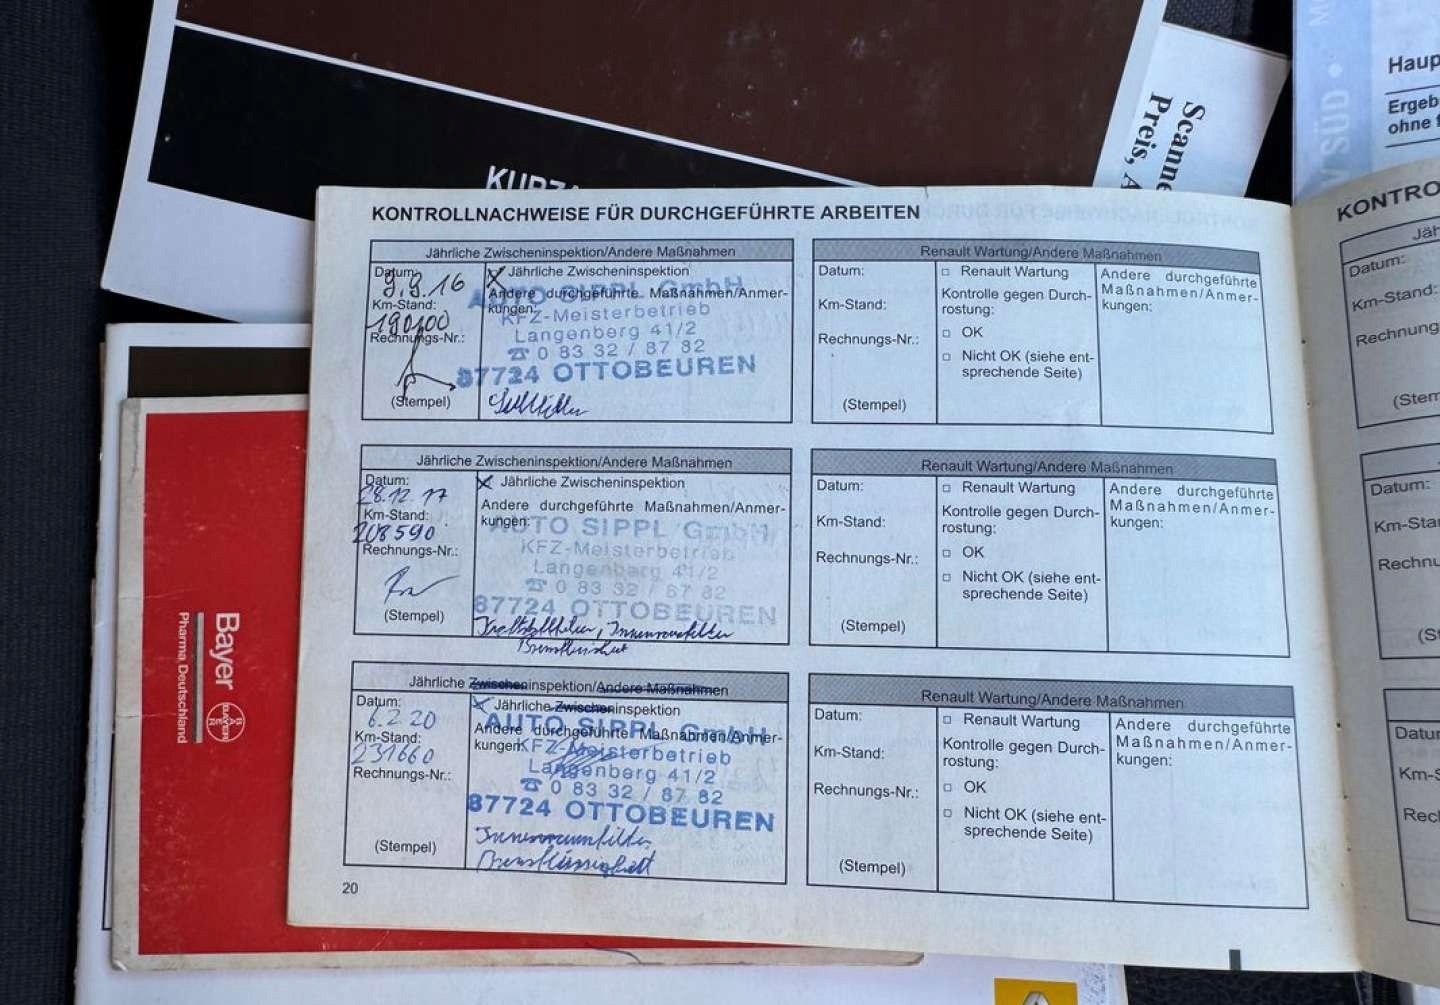 KURZ
Scanne
Preis, A
SÜD
Haup
Ergeb
ohne f
KONTROLLNACHWEISE FÜR DURCHGEFÜHRTE ARBEITEN
Jährliche Zwischeninspektion/Andere Maßnahmen
Datum:
9.9.16
Km-Stand:
190100
Rechnungs-Nr.:
(Stempel)
Jährliche Zwischeninspektion
Andere durchgeführte Maßnahmen/Anmer-
kungen:
AUTO SIPPL GmbH
KFZ-Meisterbetrieb
Langenberg 41/2
☎ 0 83 32 / 87 82
87724 OTTOBEUREN
Renault Wartung/Andere Maßnahmen
Datum:
Km-Stand:
Rechnungs-Nr.:
(Stempel)
Renault Wartung
Kontrolle gegen Durch-
rostung:
OK
Nicht OK (siehe ent-
sprechende Seite)
Andere durchgeführte
Maßnahmen/Anmer-
kungen:
Jährliche Zwischeninspektion/Andere Maßnahmen
Datum:
28.12.17
Km-Stand:
208590
Rechnungs-Nr.:
(Stempel)
Jährliche Zwischeninspektion
Andere durchgeführte Maßnahmen/Anmer-
kungen:
AUTO SIPPL GmbH
KFZ-Meisterbetrieb
Langenberg 41/2
☎ 0 83 32 / 87 82
87724 OTTOBEUREN
Kraftstofffilter, Innenraumfilter
Bremsflüssigkeit
Renault Wartung/Andere Maßnahmen
Datum:
Km-Stand:
Rechnungs-Nr.:
(Stempel)
Renault Wartung
Kontrolle gegen Durch-
rostung:
OK
Nicht OK (siehe ent-
sprechende Seite)
Andere durchgeführte
Maßnahmen/Anmer-
kungen:
Jährliche Zwischeninspektion/Andere Maßnahmen
Datum:
6.2.20
Km-Stand:
231660
Rechnungs-Nr.:
(Stempel)
Jährliche Zwischeninspektion
Andere durchgeführte Maßnahmen/Anmer-
kungen:
AUTO SIPPL GmbH
KFZ-Meisterbetrieb
Langenberg 41/2
☎ 0 83 32 / 87 82
87724 OTTOBEUREN
Innenraumfilter
Bremsflüssigkeit
Renault Wartung/Andere Maßnahmen
Datum:
Km-Stand:
Rechnungs-Nr.:
(Stempel)
Renault Wartung
Kontrolle gegen Durch-
rostung:
OK
Nicht OK (siehe ent-
sprechende Seite)
Andere durchgeführte
Maßnahmen/Anmer-
kungen:
20
KONTRO
Jäh
Datum:
Km-Stand:
Rechnung
(Stem
Datum:
Km-Sta
Rechnu
(S
Datu
Km-S
Rec
Bayer
Pharma Deutschland
BAYER